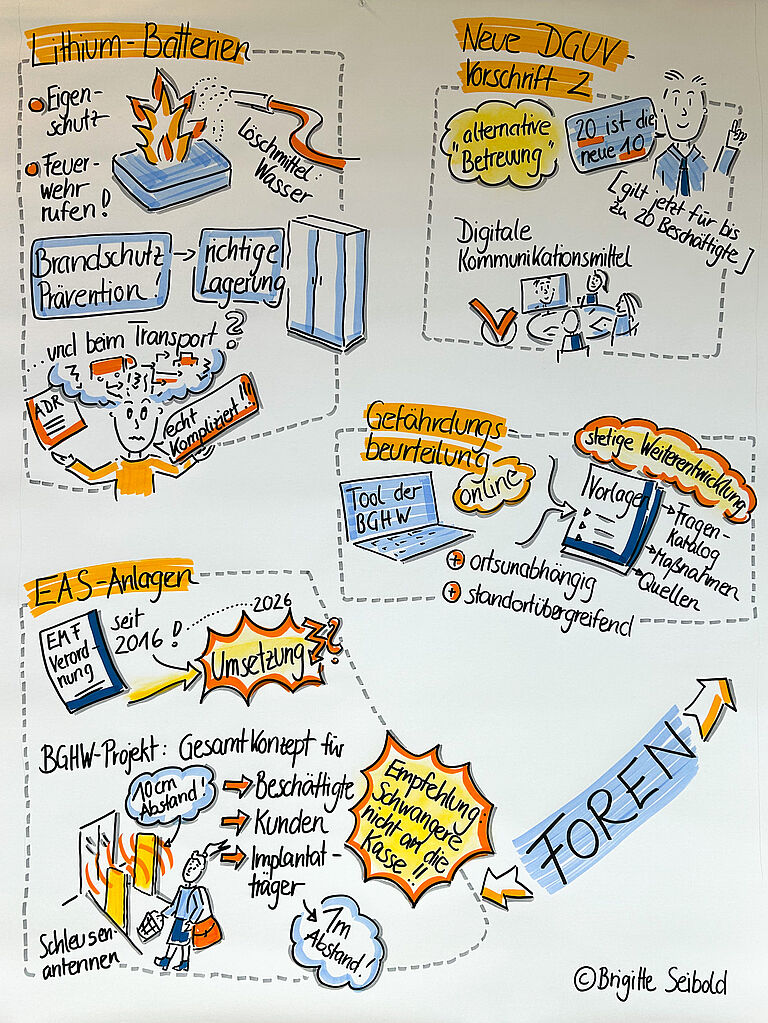 Lithium-Batterien
Eigen-
schutz
Feuer-
wehr
rufen!
Löschmittel:
Wasser
Brandschutz
Prävention
richtige
Lagerung
...und beim Transport?
ADR
echt
kompliziert!!!
Neue DGUV-
Vorschrift 2
"alternative
Betreuung"
20 ist die
neue 10
[gilt jetzt für bis
zu 20 Beschäftigte]
Digitale
Kommunikationsmittel
Gefährdungs-
beurteilung
online
Tool der
BGHW
+ ortsunabhängig
+ standortübergreifend
stetige Weiterentwicklung
Vorlage
Fragen-
Katalog
Maßnahmen
Quellen
EAS-Anlagen
EMF
Verord-
nung
seit
2016!
2026
Umsetzung
?
BGHW-Projekt: Gesamtkonzept für
10cm
Abstand!
Beschäftigte
Kunden
Implantat-
träger
1m
Abstand!
Schleusen-
antennen
Empfehlung:
Schwangere
nicht an die
Kasse!!
FOREN
©Brigitte Seibold